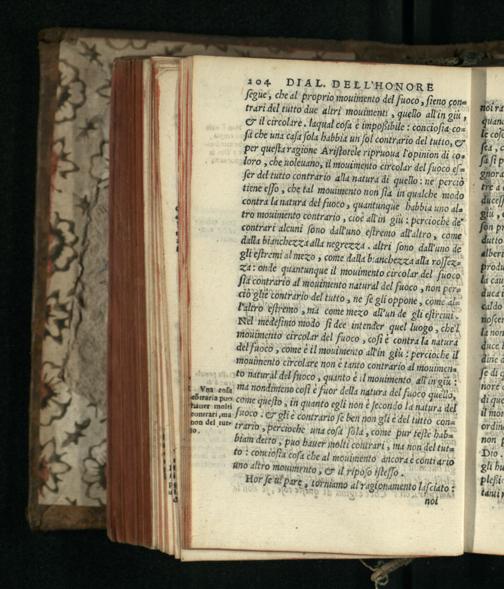 204 DIAL. DELL'HONORE
segue, che al proprio mouimento del fuoco, sieno con-
trari del tutto due altri mouimenti, quello all'in giu,
& il circolare. laqual cosa è impoßibile: conciosia co-
sa che una cosa sola habbia un sol contrario del tutto, &
per questa ragione Aristotele ripruoua l'opinion di co-
loro, che uoleuano, il mouimento circolar del fuoco es-
ser del tutto contrario alla natura di quello: ne perciò
tiene esso, che tal mouimento non sia in qualche modo
contra la natura del fuoco, quantunque habbia uno al-
tro mouimento contrario, cioè all'in giu: percioche de'
contrari alcuni sono dall'uno estremo all'altro, come
dalla bianchezza alla negrezza. altri sono dall'uno de
gli estremi al mezo, come dalla bianchezza alla rossez-
za: onde quantunque il mouimento circolar del fuoco
sia contrario al mouimento natural del fuoco, non per-
ciò gliè contrario del tutto, ne se gli oppone, come al-
l'altro estremo, ma come mezo all'un de gli estremi.
Nel medesimo modo si dee intender quel luogo, che'l
mouimento circolar del fuoco, così è contra la natura
del fuoco, come è il mouimento all'in giu: percioche il
mouimento circolare non è tanto contrario al mouimen-
to natural del fuoco, quanto è il mouimento all'in giu:
ma nondimeno così è fuor della natura del fuoco quello,
come questo, in quanto egli non è secondo la natura del
fuoco: & gli è contrario se ben non gli è del tutto con-
trario, percioche una cosa sola, come pur teste hab-
biam detto, puo hauer molti contrari, ma non del tut-
to: conciosia cosa che al mouimento ancora è contrario
uno altro mouimento, & il riposo istesso.
Hor se ui pare, torniamo al ragionamento lasciato:
noi
Vna cosa
contraria puo
hauer molti
contrari, ma
non del tut-
to.